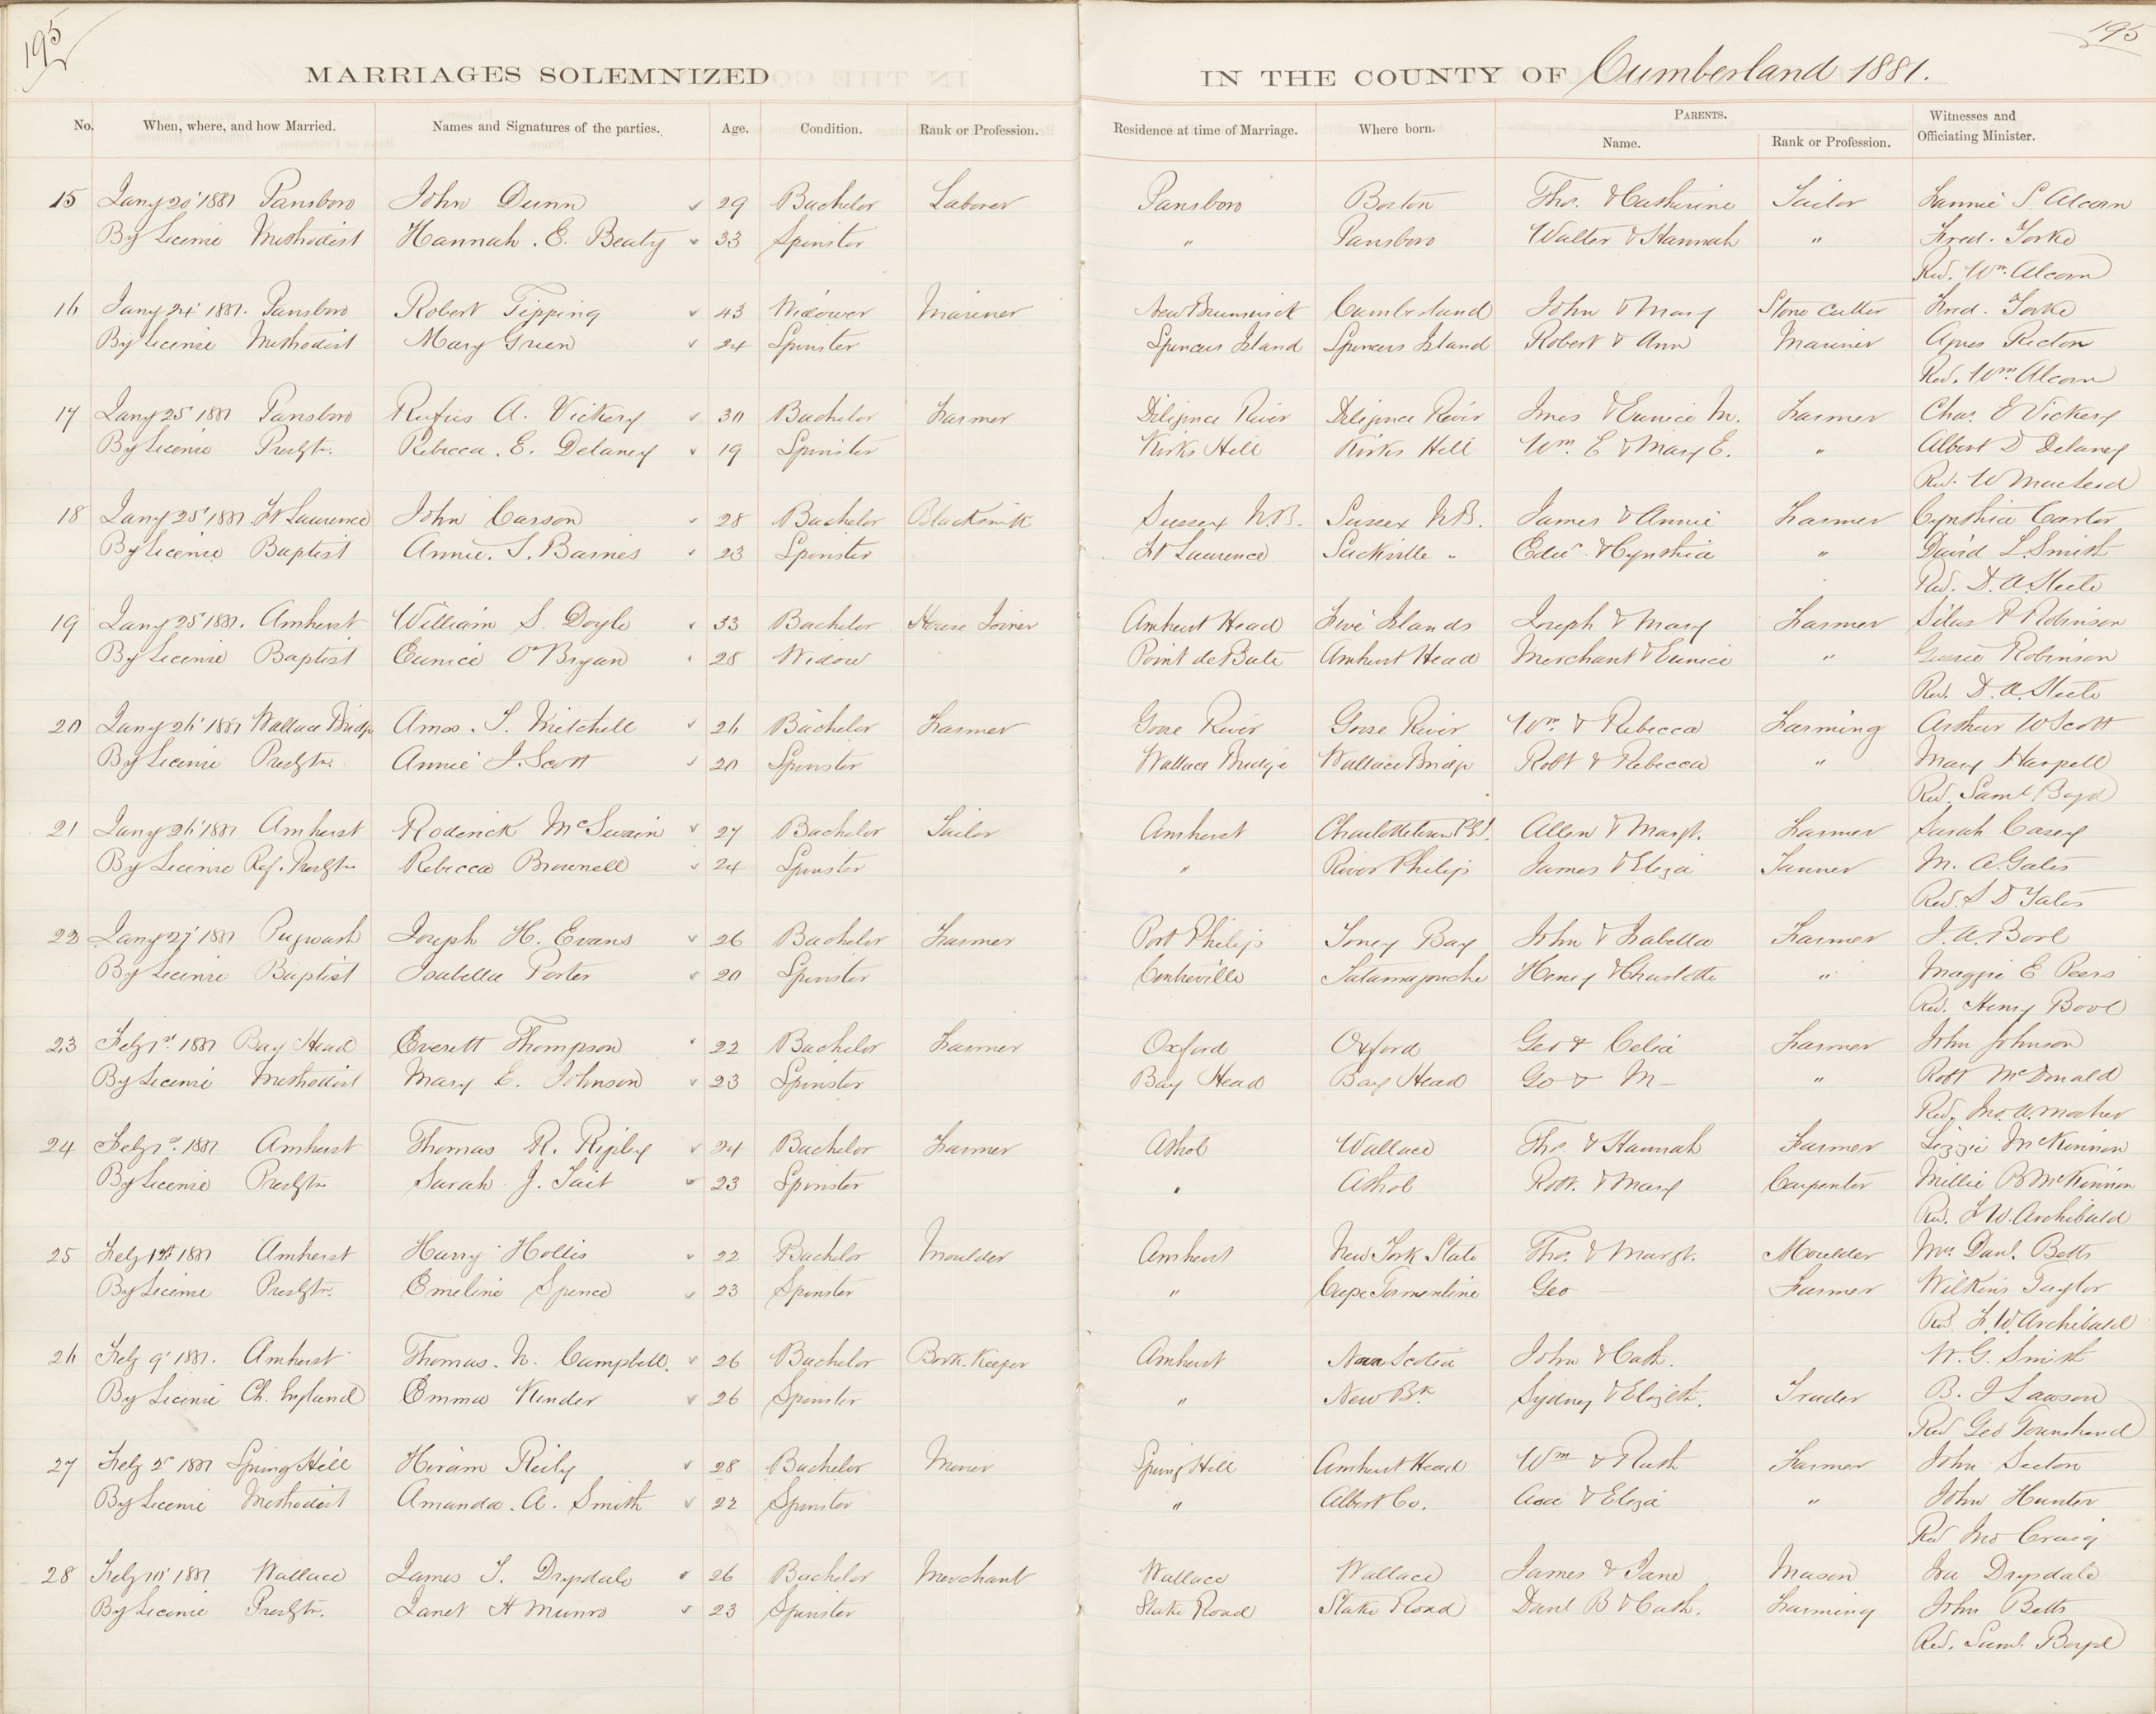 195
195
MARRIAGES SOLEMNIZED IN THE COUNTY OF Cumberland 1881.
No. When, where, and how Married. Names and Signatures of the parties. Age. Condition. Rank or Profession. Residence at time of Marriage. Where born. PARENTS. Name. Rank or Profession. Witnesses and Officiating Minister.
15 Jany 20' 1881 Parsboro John Dunn 29 Bachelor Laborer Parsboro Boston Thos. & Catherine Sailor Fannie S. Alcorn
By License Methodist Hannah. E. Beaty 33 Spinster " Parsboro Walter & Hannah " Fred. Yorke
Rev. Wm. Alcorn
16 Jany 24' 1881. Parsboro Robert Tipping 43 Widower Mariner New Brunswick Cumberland John & Mary Stone Cutter Fred. Yorke
By License Methodist Mary Green 24 Spinster Spencers Island Spencers Island Robert & Ann Mariner Agnes Ricton
Rev. Wm. Alcorn
17 Jany 25' 1881 Parsboro Rufus A. Vickery 30 Bachelor Farmer Diligence River Diligence River & Eunice M. Farmer Chas. E Vickery
By License Presbtn. Rebecca. E. Delaney 19 Spinster Kirks Hill Kirks Hill Wm. E & Mary E. " Albert D Delaney
Rev. W MacLeod
18 Jany 25' 1881 Ft Laurence John Carson 28 Bachelor Blacksmith Sussex N.B. Sussex N.B. James & Annie Farmer Cynthia Carter
By License Baptist Annie. S. Barnes 23 Spinster Ft Laurence Sackville " Edw. & Cynthia " David L. Smith
Rev. D. A. Steele
19 Jany 25' 1881. Amherst William S. Doyle 33 Bachelor House Joiner Amherst Head Five Islands Joseph & Mary Farmer Silas Robinson
By License Baptist Eunice O'Bryan 28 Widow Point de Bute Amherst Head Merchant & Eunice " Robinson
Rev. D. A. Steele
20 Jany 26' 1881 Wallace Bridge Amos. T. Mitchell 26 Bachelor Farmer Goose River Goose River Wm. & Rebecca Farming Arthur W Scott
By License Presbtn. Annie J. Scott 20 Spinster Wallace Bridge Wallace Bridge Robt & Rebecca " Mary Harpell
Rev. Saml Boyd
21 Jany 26' 1881 Amherst Roderick McSwain 27 Bachelor Tailor Amherst Charlottetown P.E.I. Allen & Margt. Farmer Sarah Casey
By License Ref. Presbtn Rebecca Brownell 24 Spinster " River Philip James & Eliza Tanner M. A. Gates
Rev. S D Yates
22 Jany 27' 1881 Pugwash Joseph H. Evans 26 Bachelor Farmer Port Philip Toney Bay John & Isabella Farmer J. A. Bool
By License Baptist Isabella Porter 20 Spinster Centreville Tatamagouche Henry & Charlotte " Maggie E Peers
Rev. Henry Bool
23 Feby 1st 1881 Bay Head Everett Thompson 22 Bachelor Farmer Oxford Oxford Geo & Celia Farmer John Johnson
By License Methodist Mary E. Johnson 23 Spinster Bay Head Bay Head Geo & M— " Robt McDonald
Rev. Jno. A. Mosher
24 Feby 1st. 1881 Amherst Thomas R. Ripley 24 Bachelor Farmer Athol Wallace Thos. & Hannah Farmer Lizzie McKinnon
By License Presbtn Sarah J. Tait 23 Spinster " Athol Robt. & Mary Carpenter Millie B McKinnon
Rev. F W Archibald
25 Feby 12th 1881 Amherst Harry Hollis 22 Bachelor Moulder Amherst New York State Thos. & Margt. Moulder Mrs Danl. Betts
By License Presbtn. Emeline Spence 23 Spinster " Cape Tormentine Geo — Farmer Wilkins Taylor
Rev. F. W. Archibald
26 Feby 9' 1881. Amherst Thomas. N. Campbell. 26 Bachelor Book Keeper Amherst Nova Scotia John & Cath. W. G. Smith
By License Ch. England Emma Kinder 26 Spinster " New Bk. Sydney & Elizth. Trader B. J Lawson
Rev Geo Townshend
27 Feby 2nd 1881 Spring Hill Hiram Reily 28 Bachelor Miner Spring Hill Amherst Head Wm & Ruth Farmer John Seeton
By License Methodist Amanda. A. Smith 22 Spinster " Albert Co. Asa & Eliza " John Hunter
Rev Jno Craig
28 Feby 10' 1881 Wallace James T. Drysdale 26 Bachelor Merchant Wallace Wallace James & Jane Mason Ira Drysdale
By License Presbtn. Janet H Munro 23 Spinster Stake Road Stake Road Danl B & Cath. Farming John Betts
Rev. Saml. Boyd